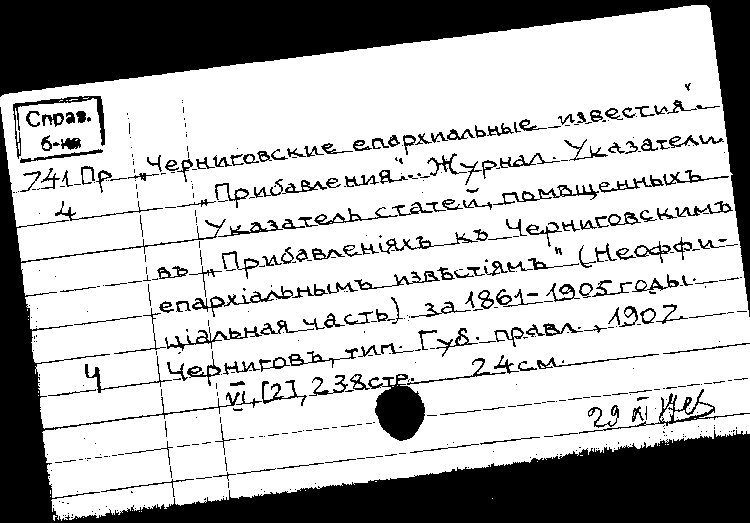 Справ.
б-ка
741 Пр „Черниговские епархиальные известия".
4 „Прибавления"... Журнал. Указатели.
Указатель статей, помѣщенныхъ
въ „Прибавленіяхъ къ Черниговскимъ
епархіальнымъ извѣстіямъ" (Неоффи-
ціальная часть) за 1861-1905 годы.
Ч Черниговъ, тип. Губ. правл., 1907.
VI, [2], 238 стр. 24 см.
29 XI